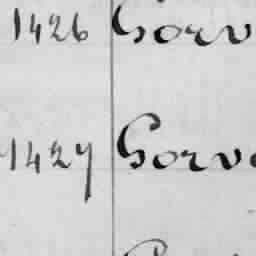 1426 Gorv
1427 Gorv